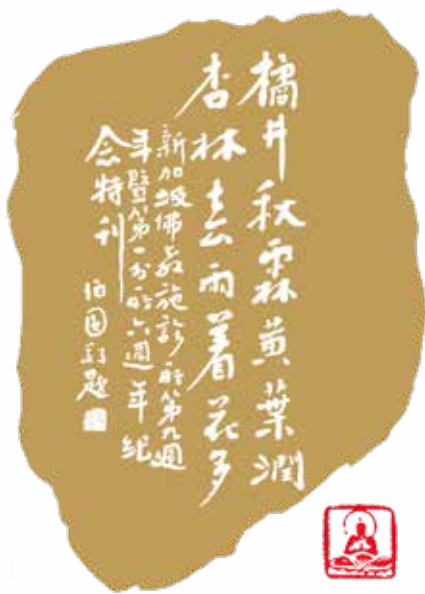 橘井秋霖黄葉潤
杏林春雨着花多
新加坡佛教施診所第九週
年暨第一分所六週年紀
念特刊
伯圓敬題